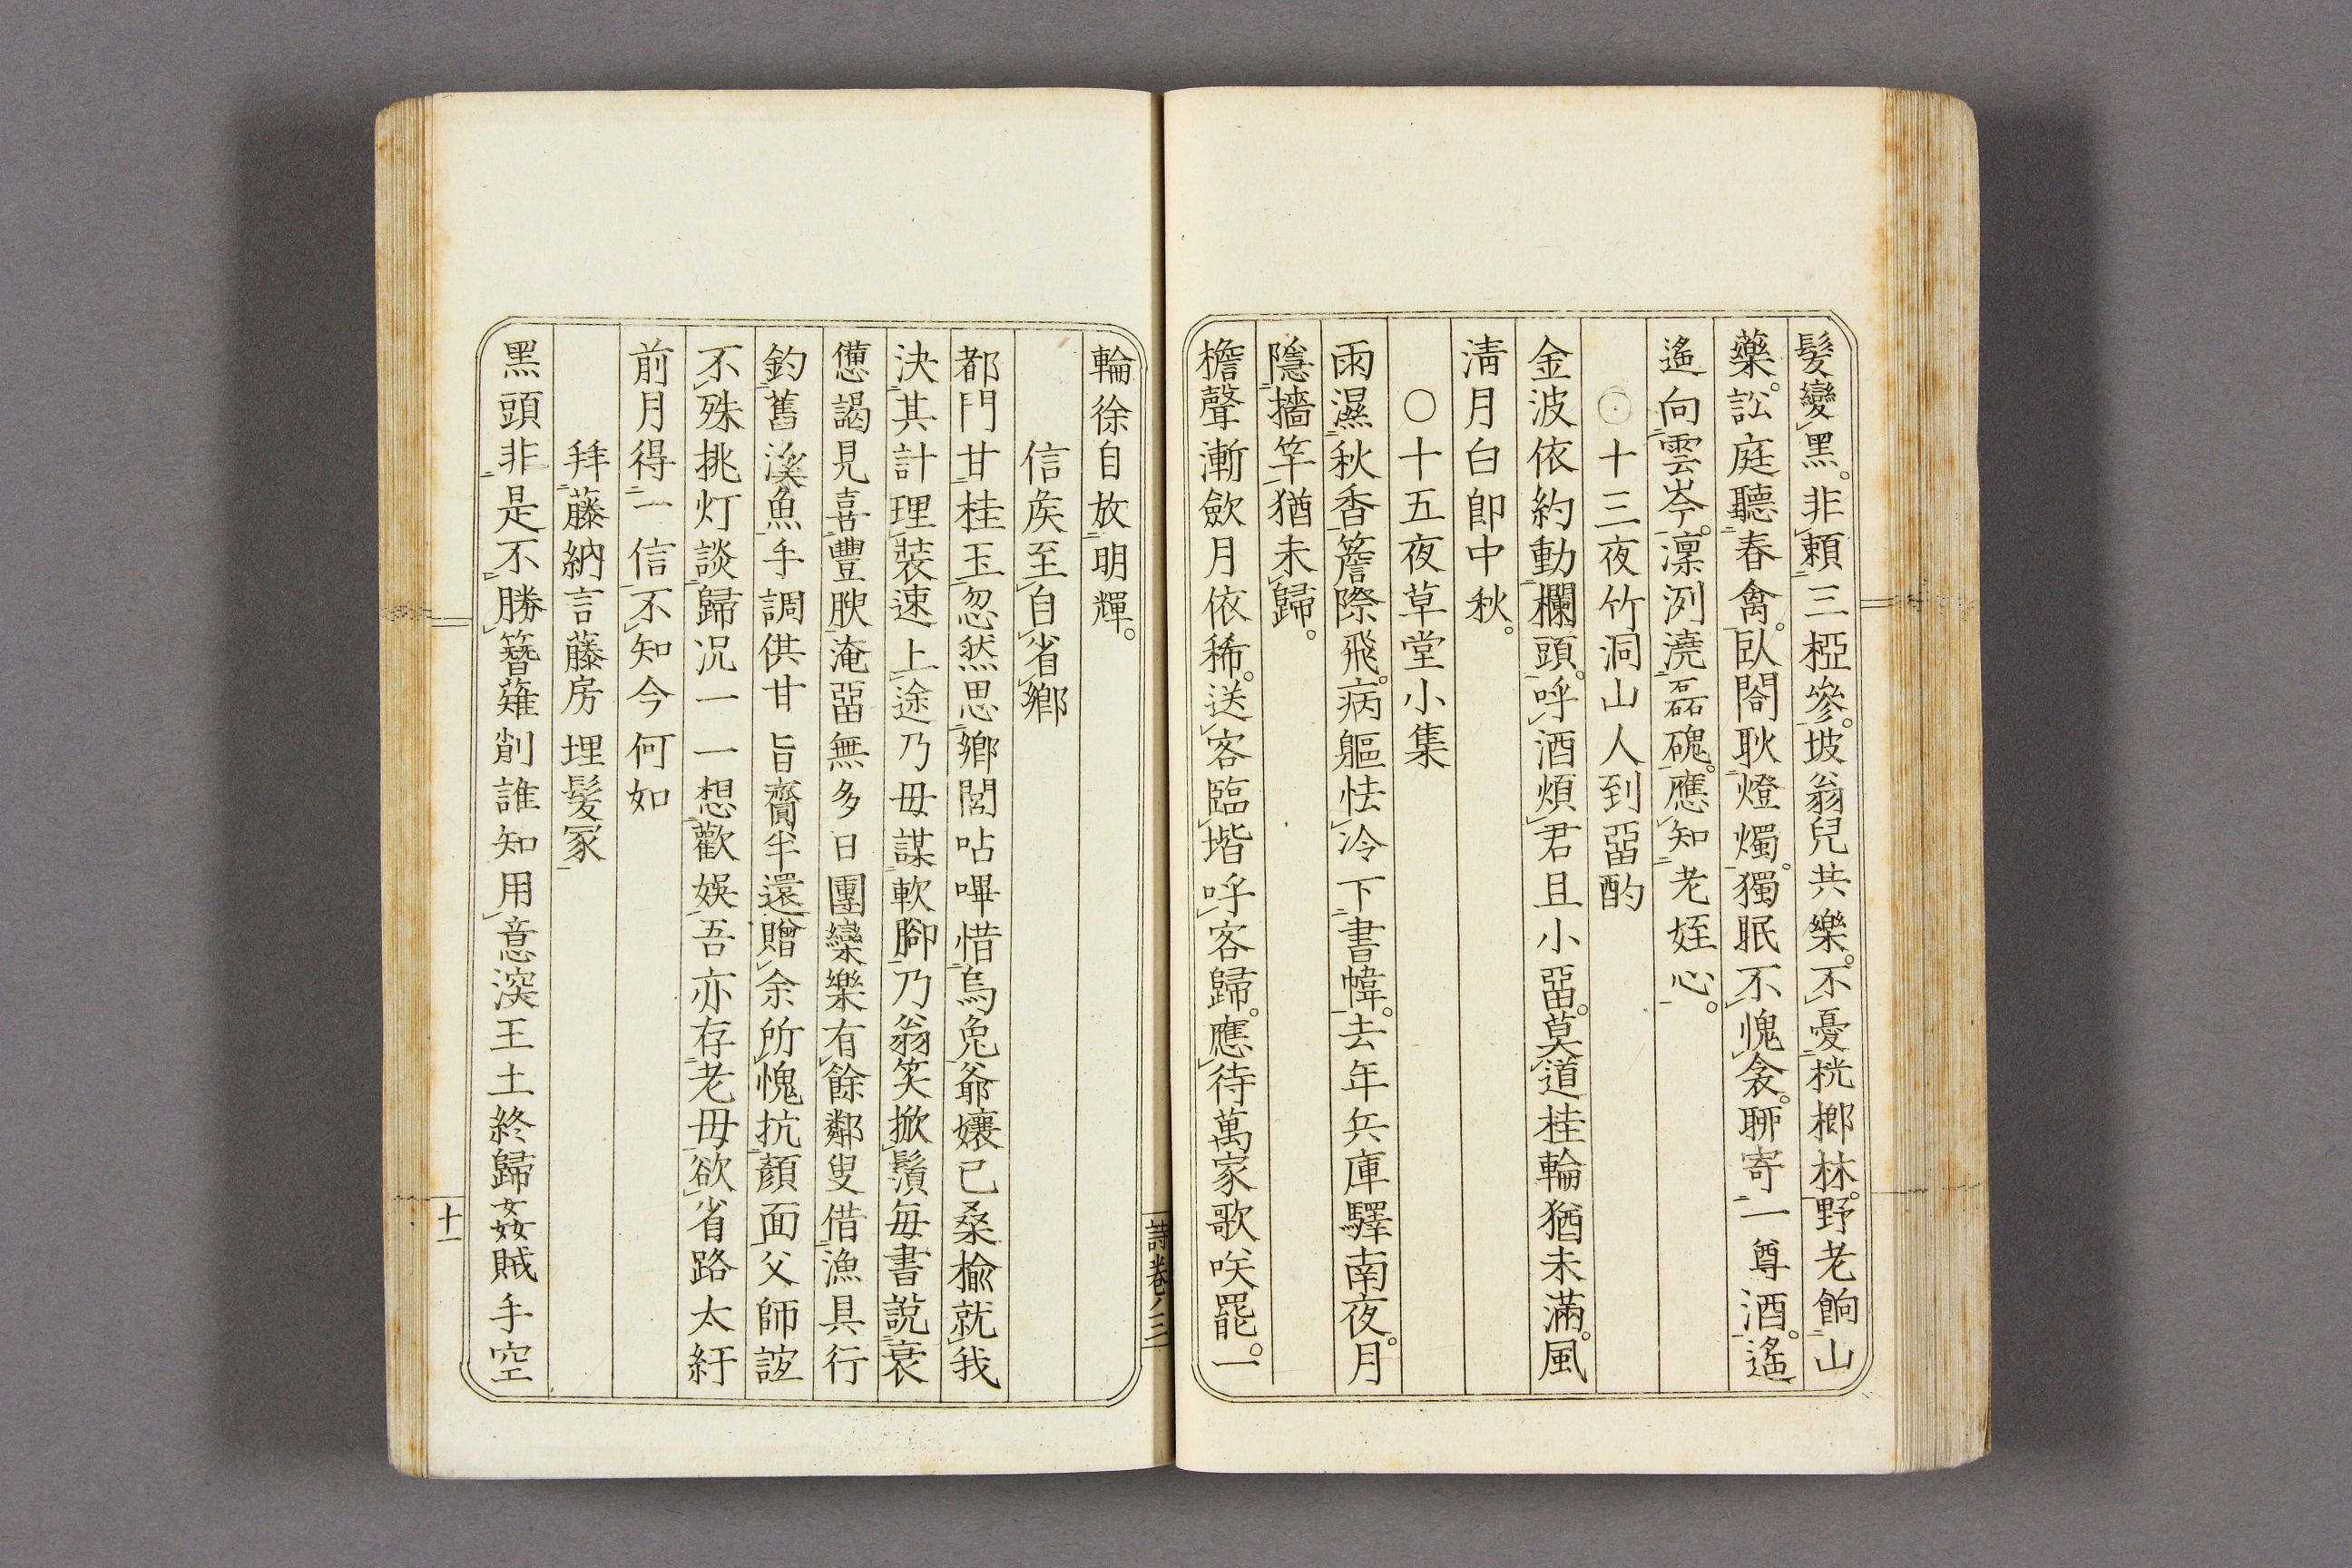 髮變黑。非賴三椏參。坡翁兒共樂。不憂桄榔林。野老餉山
藥。訟庭聽春禽。臥閤耿燈燭。獨眠不愧衾。聊寄一尊酒。遙
遙向雲岑。凛冽澆磊磈。應知老姪心。
○十三夜竹洞山人到畱酌
金波依約動欄頭。呼酒煩君且小畱。莫道桂輪猶未滿。風
淸月白卽中秋。
○十五夜草堂小集
雨濕秋香簷際飛。病軀怯冷下書幃。去年兵庫驛南夜。月
隱檣竿猶未歸。
檐聲漸歛月依稀。送客臨堦呼客歸。應待萬家歌咲罷。一
詩卷ノ三
輪徐自放明輝。
信矦至自省鄉
都門甘桂玉忽然思鄉閭呫嗶惜烏兔爺孃已桑楡就我
決其計理裝速上途乃毋謀軟腳乃翁笑掀鬚每書說衰
憊謁見喜豐腴淹畱無多日團欒樂有餘鄰叟借漁具行
釣舊溪魚手調供甘旨齎半還贈余所愧抗顏面父師誼
不殊挑灯談歸况一一想歡娛吾亦存老毋欲省路太紆
前月得一信不知今何如
拜藤納言藤房埋髮冢
黑頭非是不勝簪薙削誰知用意深王土終歸姦賊手空
十一